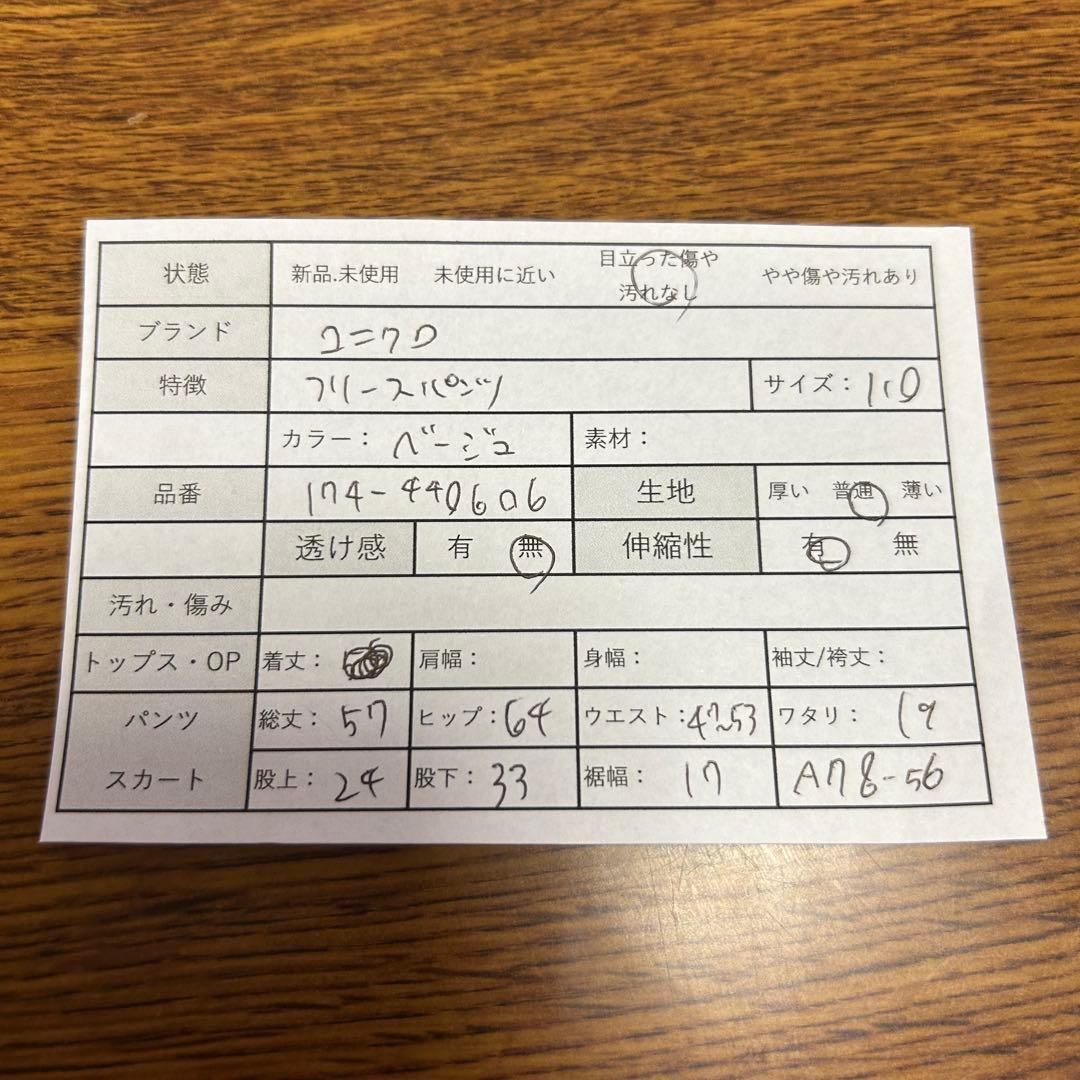 状態 新品.未使用 未使用に近い 目立った傷や汚れなし やや傷や汚れあり
ブランド ユニクロ
特徴 フリースパンツ サイズ: 110
カラー: ベージュ 素材:
品番 174-440606 生地 厚い 普通 薄い
透け感 有 無 伸縮性 有 無
汚れ・傷み
トップス・OP 着丈: 肩幅: 身幅: 袖丈/袴丈:
パンツ 総丈: 57 ヒップ: 64 ウエスト: 47~53 ワタリ: 19
スカート 股上: 24 股下: 33 裾幅: 17 A78-56